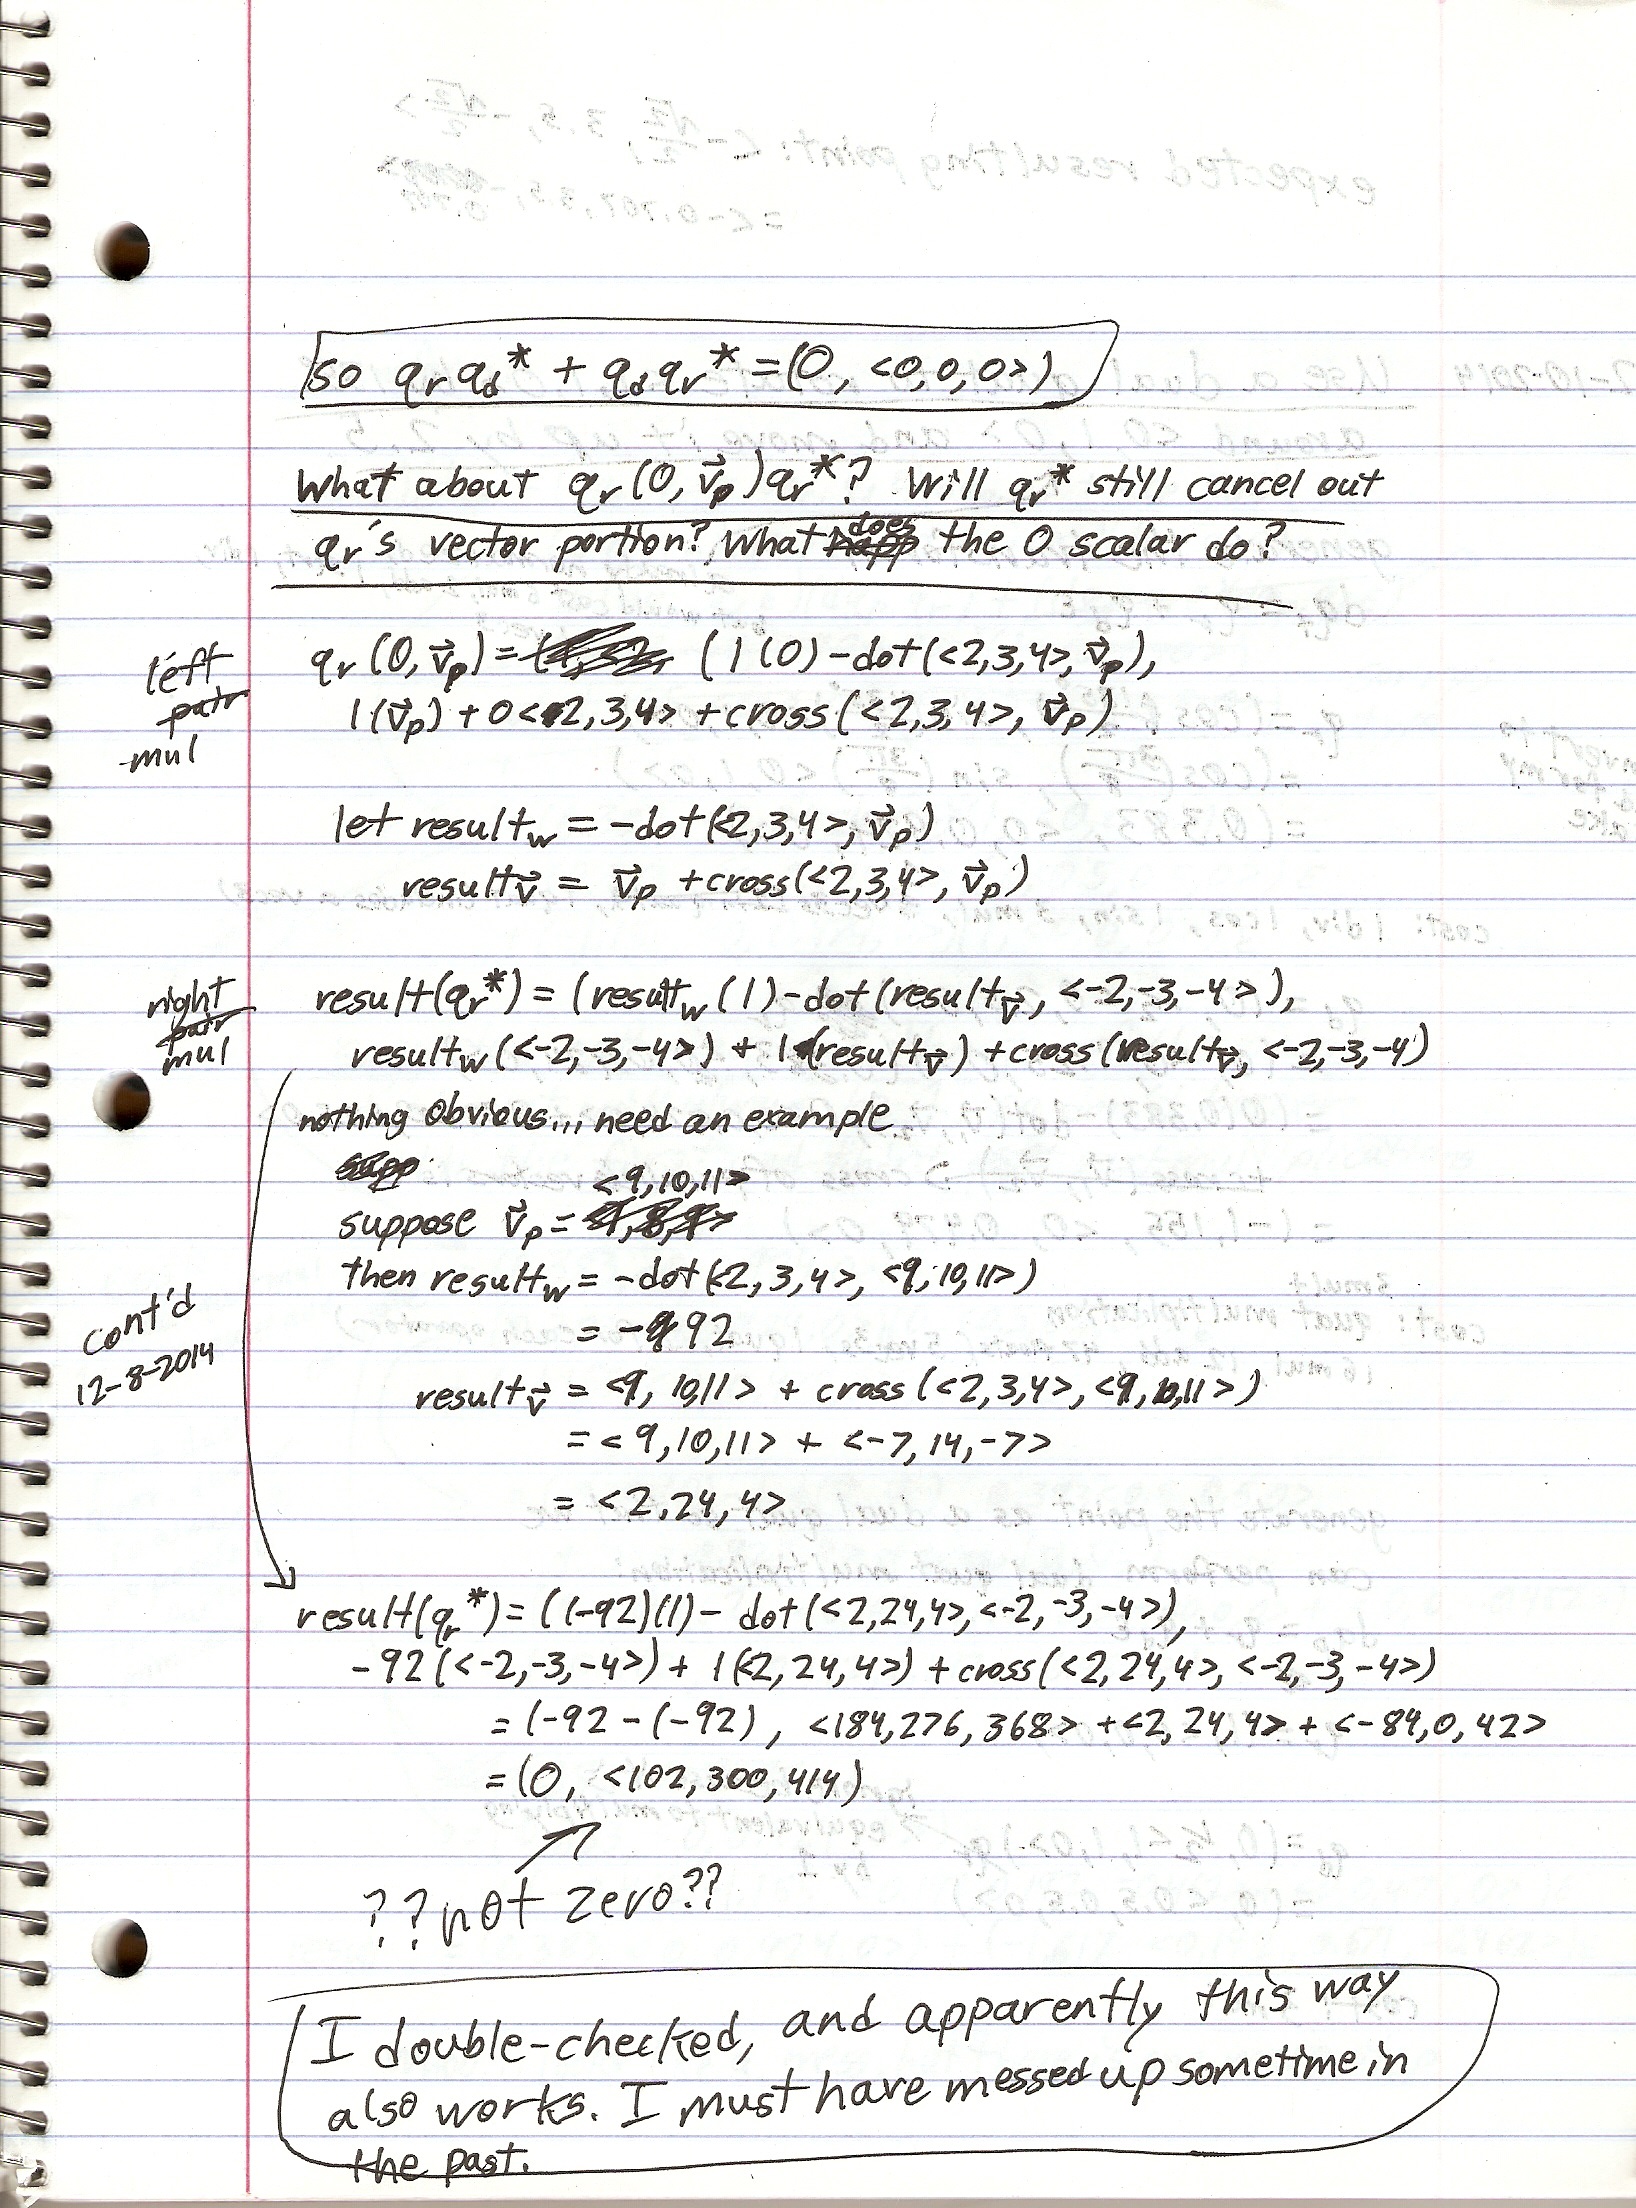 so qr qd* + qd qr* = (0, <0,0,0>)
What about qr(0, v⃗p)qr*? Will qr* still cancel out
qr's vector portion? What does the 0 scalar do?
left
pair
mul
qr(0, v⃗p) = (1(0) - dot(<2,3,4>, v⃗p),
1(v⃗p) + 0<2,3,4> + cross(<2,3,4>, v⃗p)
let resultw = -dot(<2,3,4>, v⃗p)
resultv⃗ = v⃗p + cross(<2,3,4>, v⃗p)
right
pair
mul
result(qr*) = (resultw(1) - dot(resultv⃗, <-2,-3,-4>),
resultw(<-2,-3,-4>) + 1(resultv⃗) + cross(resultv⃗, <-2,-3,-4)
nothing obvious... need an example
supp
<9,10,11>
suppose v⃗p =
then resultw = -dot(<2,3,4>, <9,10,11>)
= -92
cont'd
12-8-2014
resultv⃗ = <9,10,11> + cross(<2,3,4>, <9,10,11>)
= <9,10,11> + <-7,14,-7>
= <2,24,4>
result(qr*) = ((-92)(1) - dot(<2,24,4>, <-2,-3,-4>),
-92(<-2,-3,-4>) + 1(<2,24,4>) + cross(<2,24,4>, <-2,-3,-4>)
= (-92-(-92), <184,276,368> + <2,24,4> + <-84,0,42>
= (0, <102,300,414)
??not zero??
I double-checked, and apparently this way
also works. I must have messed up sometime in
the past.